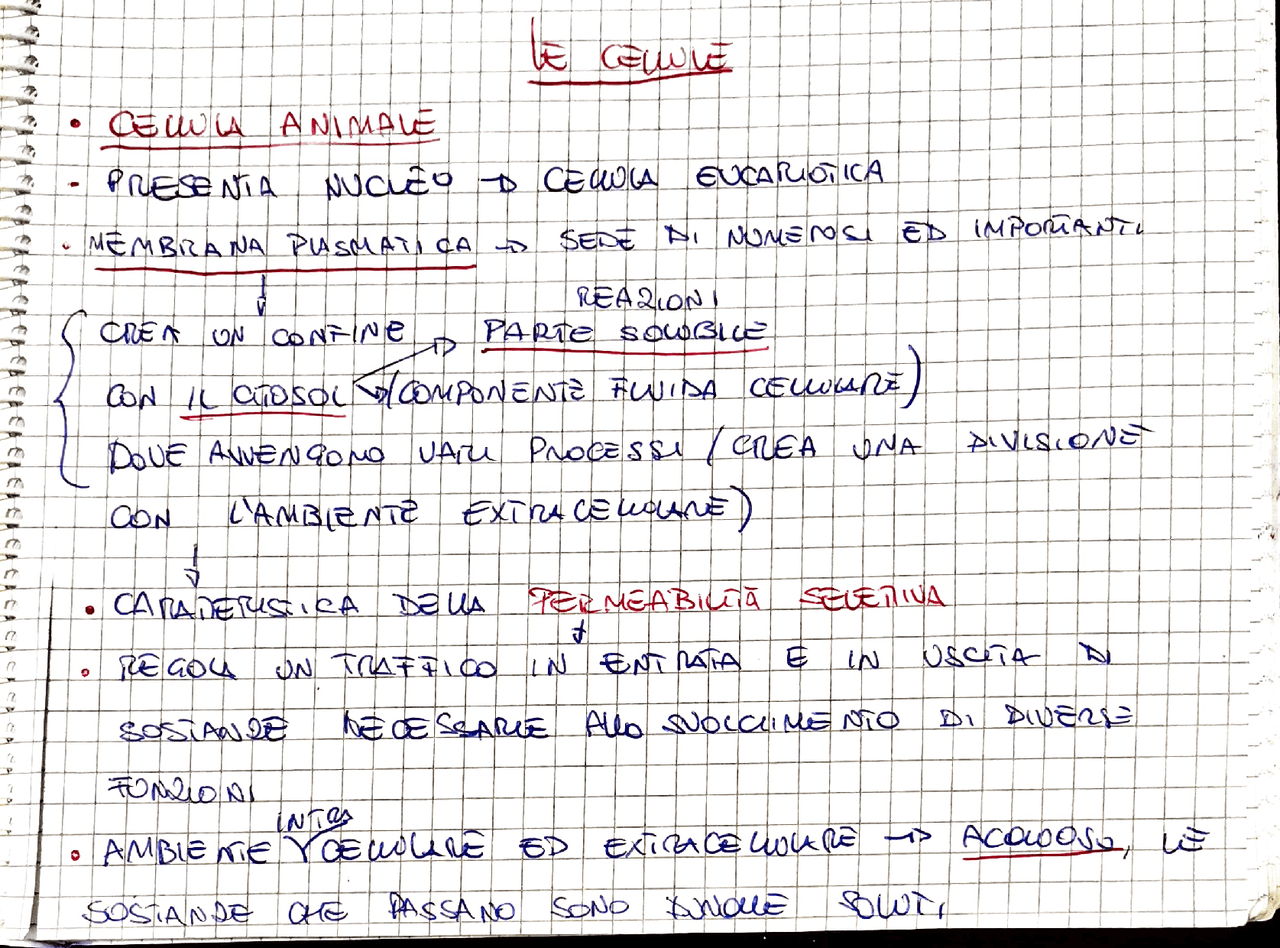 LE CELLULE
• CELLULA ANIMALE
- PRESENTA NUCLEO → CELLULA EUCARIOTICA
• MEMBRANA PLASMATICA → SEDE DI NUMEROSI ED IMPORTANTI
REAZIONI
CREA UN CONFINE → PARTE SOLUBILE
CON IL CITOSOL → (COMPONENTE FLUIDA CELLULARE)
DOVE AVVENGONO VARI PROCESSI (CREA UNA DIVISIONE
CON L'AMBIENTE EXTRACELLULARE)
• CARATTERISTICA DELLA PERMEABILITÀ SELETTIVA
• REGOLA UN TRAFFICO IN ENTRATA E IN USCITA DI
SOSTANZE NECESSARIE ALLO SVOLGIMENTO DI DIVERSE
FUNZIONI
• AMBIENTE INTRACELLULARE ED EXTRACELLULARE → ACQUOSO, LE
SOSTANZE CHE PASSANO SONO DUNQUE SOLUTI